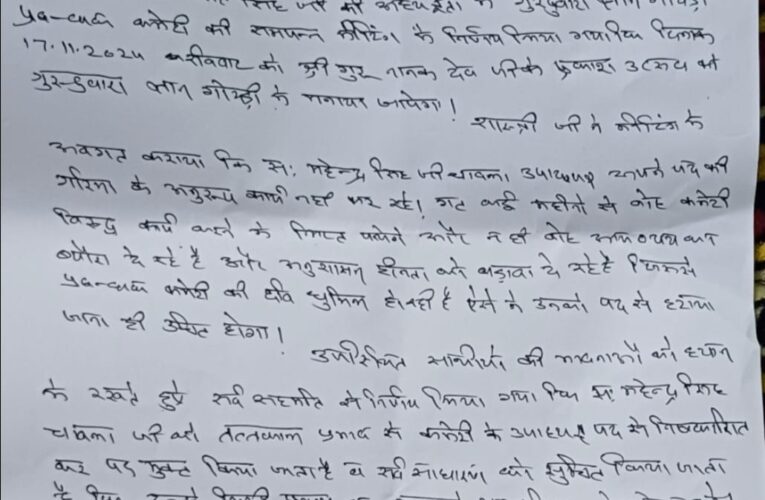 सिंह जी की अध्यक्षता में गुरुद्वारा
प्रबन्धक कमेटी की सम्पन्न मीटिंग में निर्णय लिया गया कि दिनांक
17.11.2024 रविवार को श्री गुरु नानक देव जी के प्रकाश उत्सव को
गुरुद्वारा ज्ञान गोदड़ी में मनाया जायेगा!
शास्त्री जी ने मीटिंग में
अवगत कराया कि स: महेन्द्र सिंह जी चावला उपाध्यक्ष अपने पद की
गरिमा के अनुरूप कार्य नहीं कर रहे। गत कई महीनों से वोह कमेटी
विरुद्ध कार्य करने में लिप्त और न ही कोई आय व्यय का
ब्योरा दे रहे हैं और अनुशासन हीनता को बढ़ावा दे रहे है जिससे
प्रबन्धक कमेटी की छवि धुमिल हो रही है ऐसे में उनको पद से हटाया
जाना ही उचित होगा!
उपस्थित साथीयों की भावनाओं को ध्यान
में रखते हुऐ सर्व सहमति से निर्णय लिया गया कि स: महेन्द्र सिंह
चावला जी को तत्काल प्रभाव से कमेटी के उपाध्यक्ष पद से निष्कासित
कर पद मुक्त किया जाता है व सर्व साधारण को सुचित किया जाता
है कि